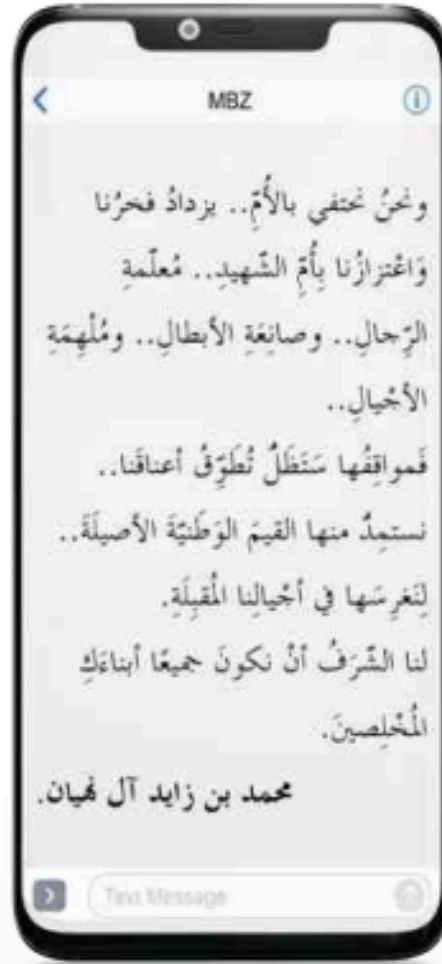 MBZ
ونحنُ نحتفي بالأُمّ.. يزدادُ فخرُنا
وَاعْتزازُنا بِأُمّ الشّهيدِ.. مُعلّمةِ
الرِّجالِ.. وصانِعَةِ الأبطالِ.. ومُلْهِمَةِ
الأجْيالِ..
فَمواقِفُها سَتَظَلُّ تُطَوِّقُ أعناقَنا..
نستمِدُّ منها القيمَ الوَطَنيّةَ الأصيلَةَ..
لِنَغرِسَها في أجْيالِنا المُقبِلَةِ.
لنا الشّرَفُ أنْ نكونَ جميعًا أبناءَكِ
المُخْلِصينَ.
محمد بن زايد آل نهيان.
Text Message